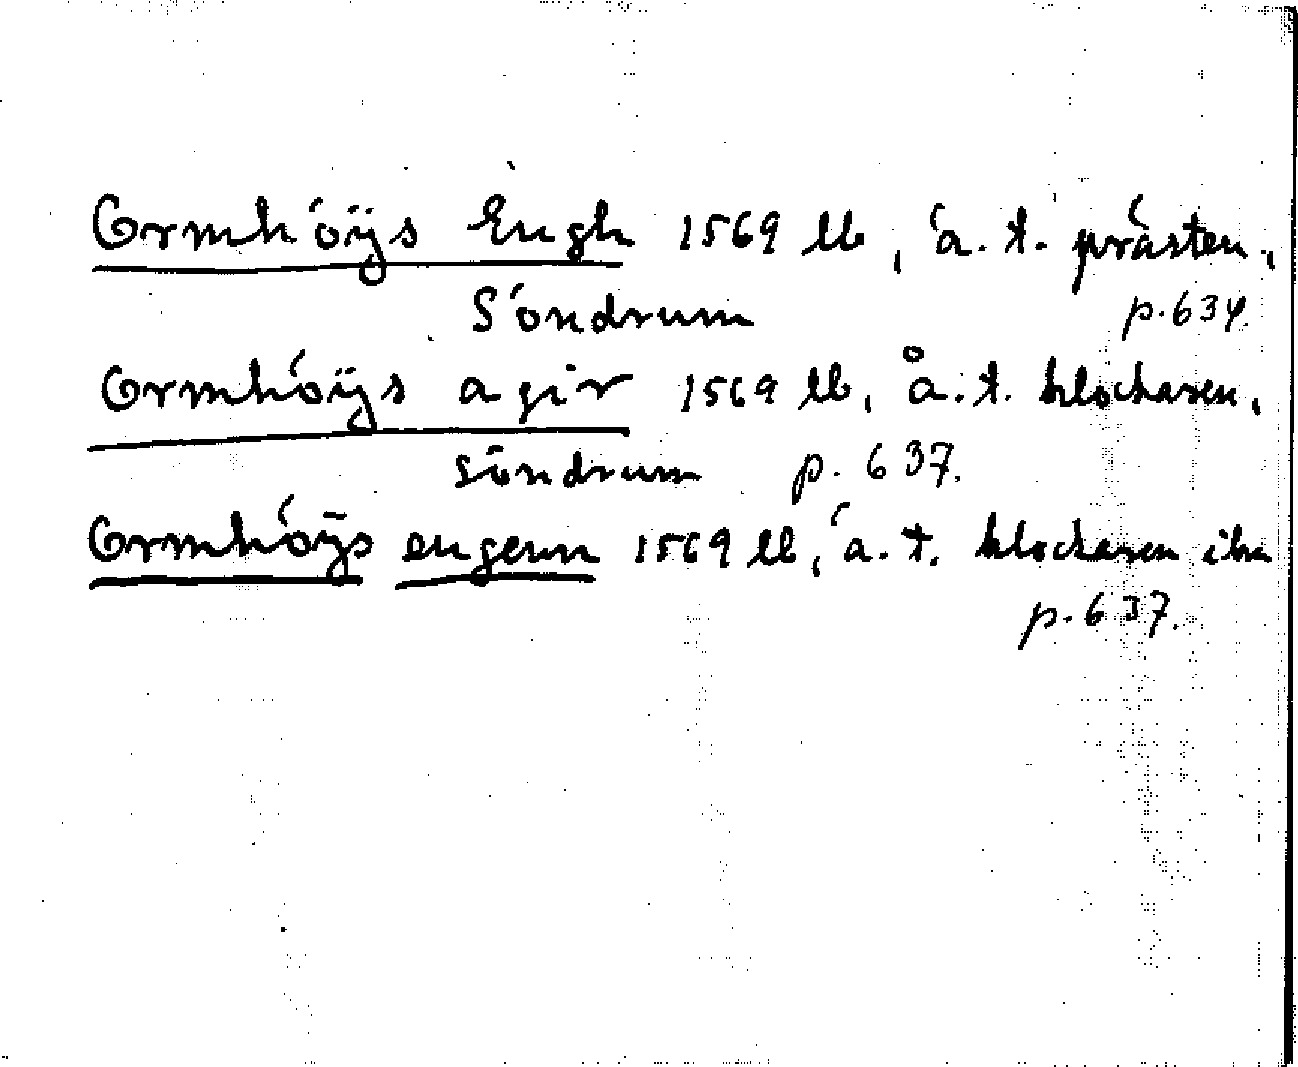 Ormhöÿs Engh 1569 lb, å.t. prästen,
Söndrum p.634.
Ormhöÿs agir 1569 lb, å.t. klockaren,
Söndrum p. 637.
Ormhöÿs engenn 1569 lb, å.t. klockaren ibm
p.637.